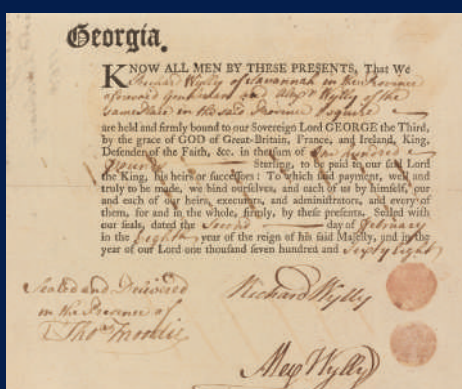 Georgia.
KNOW ALL MEN BY THESE PRESENTS, That We
Richard Wylly of Savannah in the Province
aforesaid Gentleman and Alexr Wylly of the
same Place in the said Province Esquire
are held and firmly bound to our Sovereign Lord GEORGE the Third,
by the grace of GOD of Great-Britain, France, and Ireland, King,
Defender of the Faith, &c. in the sum of One hundred
Pounds Sterling, to be paid to our said Lord
the King, his heirs or successors: To which said payment, well and
truly to be made, we bind ourselves, and each of us by himself, our
and each of our heirs, executors, and administrators, and every of
them, for and in the whole, firmly, by these presents. Sealed with
our seals, dated the Second day of February
in the eighth year of the reign of his said Majesty, and in the
year of our Lord one thousand seven hundred and Sixty eight
Sealed and Delivered
in the Presence of
Richard Wylly
Thos Moodie
Alex Wylly